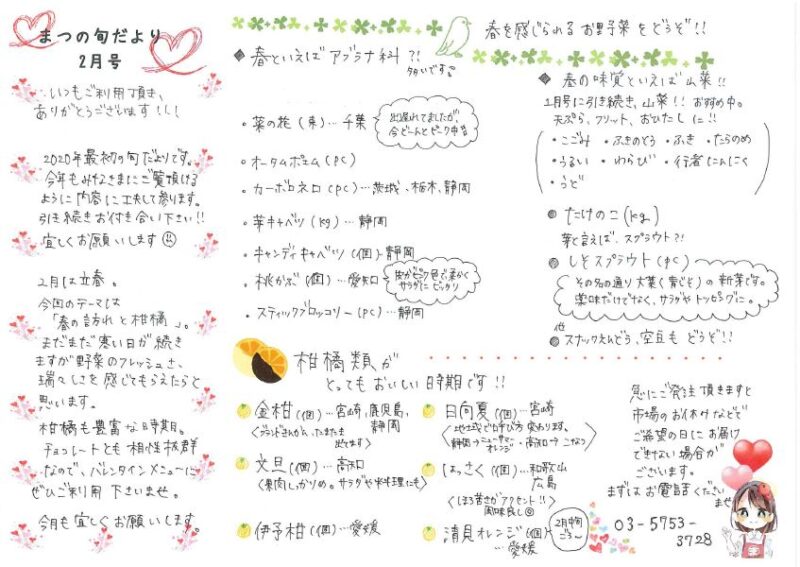 まつの旬だより
2月号
いつもご利用頂き、
ありがとうございます!!!
2020年最初の旬だよりです。
今年もみなさまにご覧頂ける
ように内容に工夫して参ります。
引き続きお付き合い下さい!!
宜しくお願いします
2月は立春。
今回のテーマは
「春の訪れと柑橘」。
まだまだ寒い日が続き
ますが野菜のフレッシュさ、
瑞々しさを感じてもらえたらと
思います。
柑橘も豊富な時期。
チョコレートとも相性抜群
なので、バレンタインメニューに
ぜひご利用下さいませ。
今月も宜しくお願いします。
春を感じられるお野菜をどうぞ!!
◆春といえばアブラナ科?!
多いです。
・菜の花(束)…千葉
出遅れてましたが、
今どーんとピーク中!!
・オータムポエム(PC)
・カーボロネロ(PC)…茨城、栃木、静岡
・芽キャベツ(kg)…静岡
・キャンディキャベツ(個)静岡
・桃かぶ(個)…愛知
皮がピンク色で柔らかく
サラダにピッタリ
・スティックブロッコリー(PC)…静岡
◆春の味覚といえば山菜!!
1月号に引き続き、山菜!!おすすめ中。
天ぷら、フリット、おひたしに!!
・こごみ ・ふきのとう ・ふき ・たらのめ
・うるい ・わらび ・行者にんにく
・うど
●たけのこ(kg)
芽と言えば、スプラウト?!
●しそスプラウト(PC)
その名の通り大葉(青じそ)の新芽です。
薬味だけでなく、サラダやトッピングに。
他
●スナックえんどう、空豆もどうぞ!!
柑橘類が
とってもおいしい時期です!!
金柑(個)…宮崎、鹿児島、
静岡
<ブランドさんがん、たまたま
出てます>
文旦(個)…高知
<果肉しっかりめ。サラダや料理にも>
伊予柑(個)…愛媛
日向夏(個)…宮崎
<地域で呼び方変わります。
静岡→ニューサマーオレンジ ・高知→小なつ>
はっさく(個)…和歌山
広島
<ほろ苦さがアクセント!!
風味良し>
清見オレンジ(個)
…愛媛
2月中旬
ごろ〜
急にご発注頂きますと
市場のお休みなどで
ご希望の日にお届け
できない場合が
ございます。
まずはお電話ください
ませ
03-5753-
3728